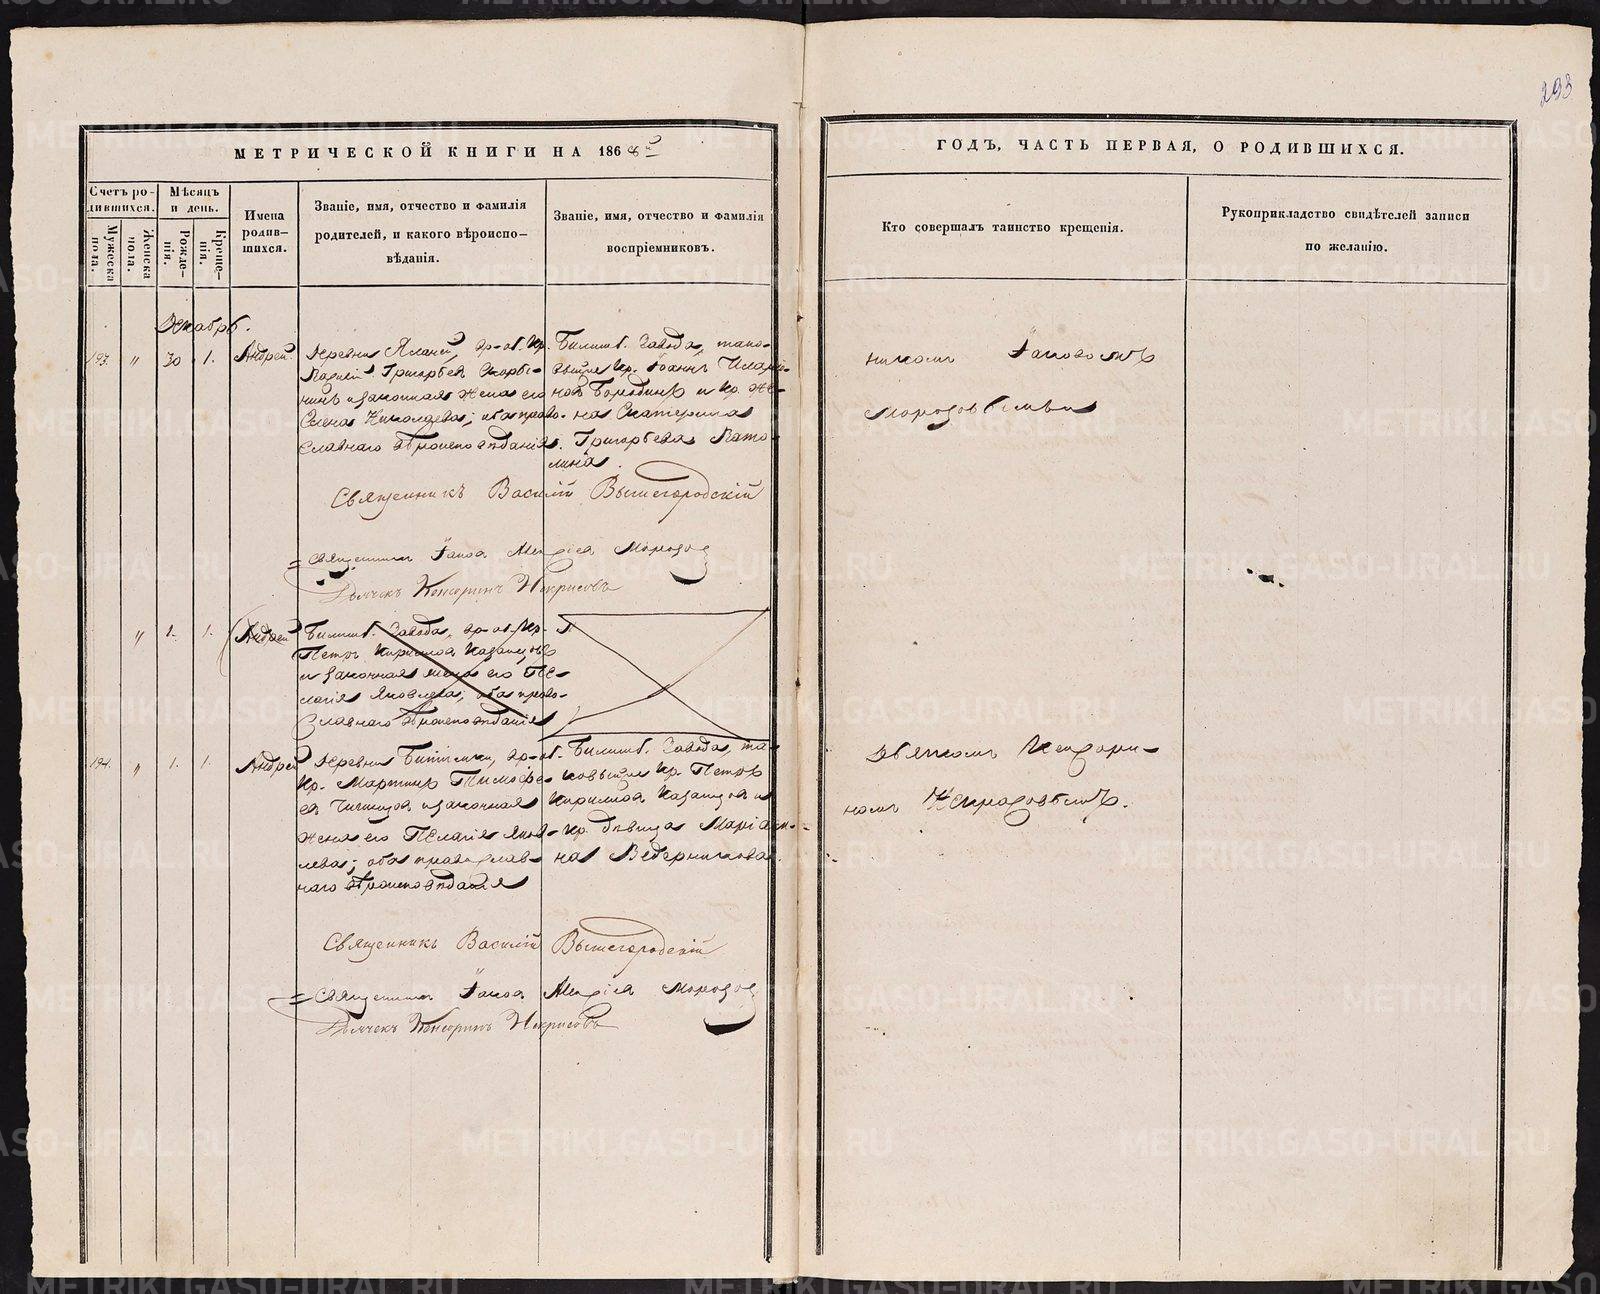 293
МЕТРИЧЕСКОЙ КНИГИ НА 1868й
ГОДЪ, ЧАСТЬ ПЕРВАЯ, О РОДИВШИХСЯ.
Счетъ ро-
дившихся.
Мужеска
пола.
Женска
пола.
Мѣсяцъ
и день.
Рожде-
нія.
Креще-
нія.
Имена
родив-
шихся.
Званіе, имя, отчество и фамилія
родителей, и какого вѣроиспо-
вѣданія.
Званіе, имя, отчество и фамилія
воспріемниковъ.
Кто совершалъ таинство крещенія.
Рукоприкладство свидѣтелей записи
по желанію.
Декабрь.
193. " 30 1. Андрей
Деревни
Григорьев
и законная жена его
Елена Николаева; оба право-
славнаго вѣроисповѣданія
Билимб. Завода, тамо-
Кр. Іоаннъ
Бородинъ и кр. же-
на Екатерина
Григорьева
никомъ Іаковомъ
Морозовымъ
Священникъ Василій Вышегородскій
Священникъ Іаков Морозов
Дьячекъ Кенсоринъ Некрасовъ
" 1. 1. Андрей
Билимб. Завода, вр-об. Кр.
Петръ Кирилов Казанцовъ
и законная жена его Пе-
лагія Яковлева; оба право-
славнаго вѣроисповѣданія
194. " 1. 1. Андрей
Деревни Битимки, вр-об.
Кр. Мартинъ Тимофе-
ев и законная
жена его Пелагія Яков-
лева; оба православ-
наго вѣроисповѣданія
Билимб. Завода, та-
ковыше Кр. Петръ
Кирилов Казанцов и
кр. девица Маріам-
на Ведерникова.
дьячкомъ Кенсори-
номъ Некрасовымъ.
Священникъ Василій Вышегородскій
Священникъ Іаков Морозов
Дьячекъ Кенсоринъ Некрасовъ
METRIKI.GASO-URAL.RU